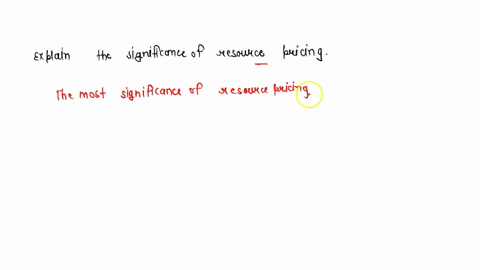 Explain the significance of resource pricing.
The most significance of resource pricing